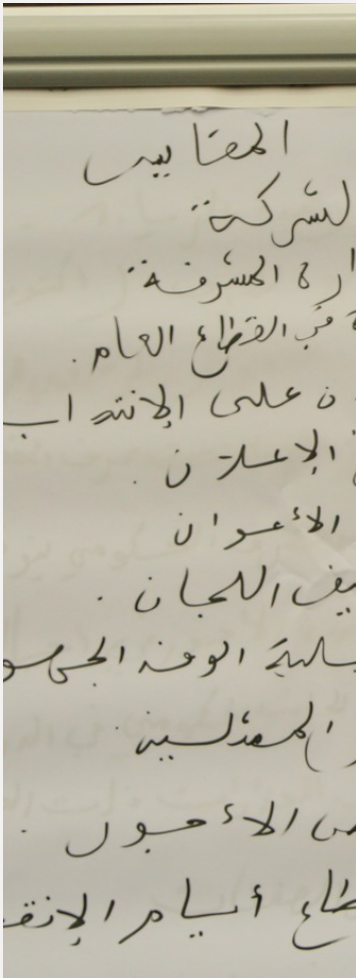 المقاييس
لشركة
ارة المشرفة
في القطاع العام.
ن على الانتداب
الإعلان.
الأعوان
يف اللجان.
الوضع
الممثلين
الأجور.
طاع أيام الإنق